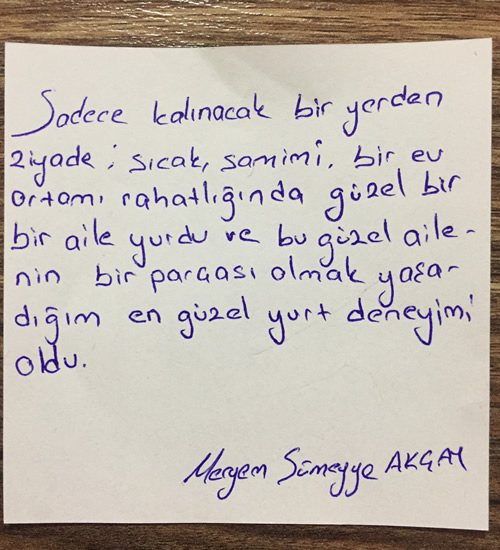 Sadece kalınacak bir yerden
ziyade ; sıcak, samimi, bir ev
ortamı rahatlığında güzel bir
bir aile yurdu ve bu güzel aile-
nin bir parçası olmak yaşa-
dığım en güzel yurt deneyimi
oldu.
Meryem Sümeyye AKÇAY